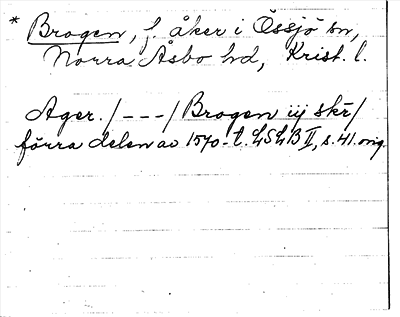 * Brogen, f. åker i Össjö sn,
Norra Åsbo hd, Krist. l.
Ager. /---/ Brogen iij skr/
förra delen av 1570-t. LSLB II, s. 41. orig.